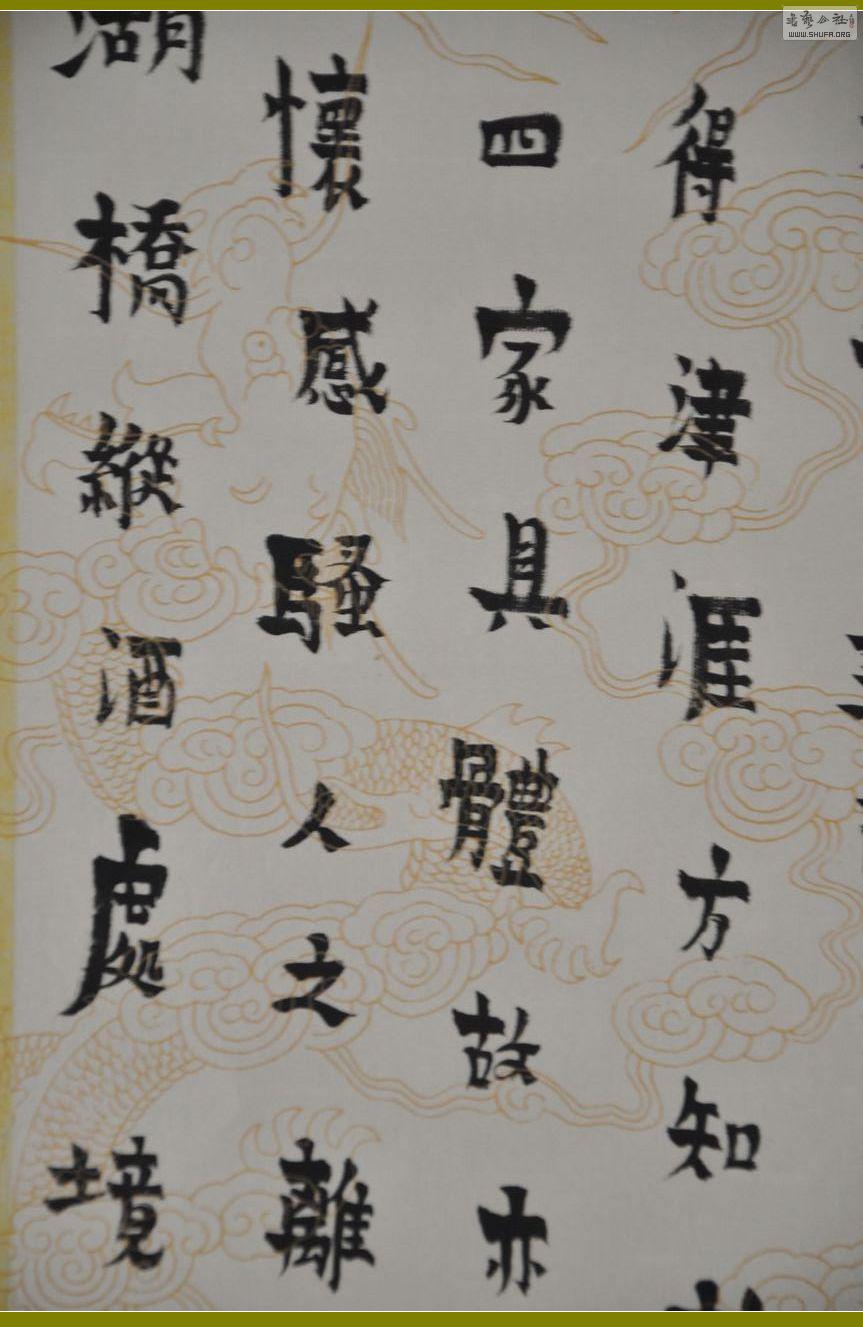 得津涯方知
四家具體故亦
懷感騷人之離
湖橋縱酒處境
WWW.SHUFA.ORG